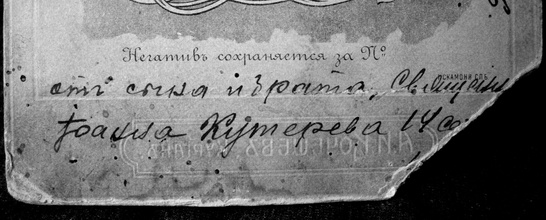 Негативъ сохраняется за №
СКАМОНИ СПБ
отъ сына и брата, Священн
Іоанна Кутерева 14 со